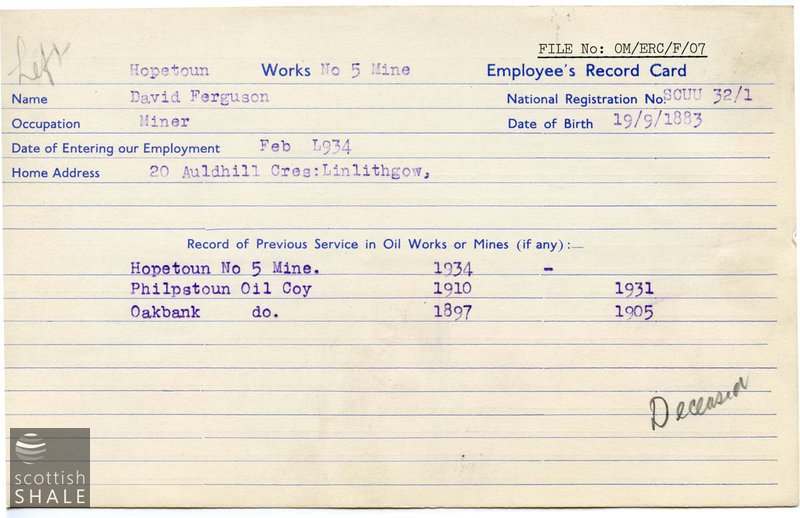 FILE No: OM/ERC/F/07
Left
Hopetoun Works No 5 Mine Employee's Record Card
Name David Ferguson National Registration No. SCUU 32/1
Occupation Miner Date of Birth 19/9/1883
Date of Entering our Employment Feb L934
Home Address 20 Auldhill Cres:Linlithgow,
Record of Previous Service in Oil Works or Mines (if any):—
Hopetoun No 5 Mine. 1934 -
Philpstoun Oil Coy 1910 1931
Oakbank do. 1897 1905
Deceased
scottish
SHALE